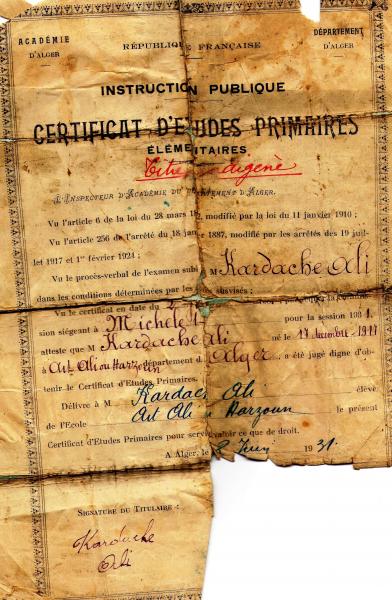 ACADÉMIE
D'ALGER
RÉPUBLIQUE FRANÇAISE
DÉPARTEMENT
D'ALGER
INSTRUCTION PUBLIQUE
CERTIFICAT D'ETUDES PRIMAIRES
ÉLÉMENTAIRES
Titre indigène
L'INSPECTEUR D'ACADÉMIE DU DÉPARTEMENT D'ALGER,
Vu l'article 6 de la loi du 28 mars 18 , modifié par la loi du 11 janvier 1910 ;
Vu l'article 256 de l'arrêté du 18 janvier 1887, modifié par les arrêtés des 19 juil-
let 1917 et 1er février 1924 ;
Vu le procès-verbal de l'examen subi M Kardache Ali
dans les conditions déterminées par les susvisés ;
Vu le certificat en date du
sion siégeant à Michelet pour la session de 1931
atteste que M Kardache Ali né le 17 décembre
à Aït Ali ou Harzoun département d'Alger, a été jugé digne d'ob-
tenir le Certificat d'Etudes Primaires.
Délivré à M Kardache Ali élève
de l'Ecole Aït Ali Harzoun le présent
Certificat d'Etudes Primaires pour servir valoir ce que de droit.
A Alger, le Juin 1931.
SIGNATURE DU TITULAIRE :
Kardache
Ali